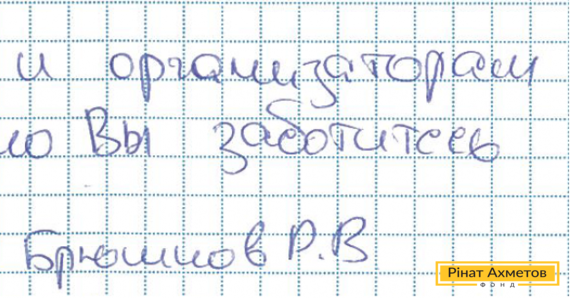 и организаторам
но Вы заботитесь
Брюшков Р.В
Рінат Ахметов
фонд